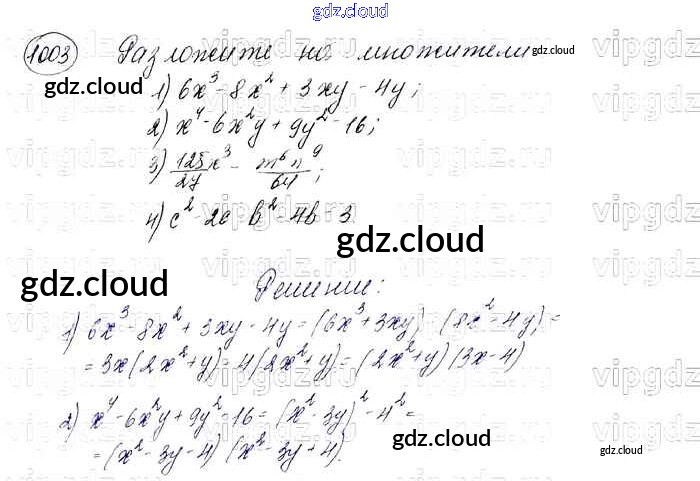 gdz.cloud
1003 Разложите на множители gdz.cloud
gdz.cloud 1) 6x³ - 8x² + 3xy - 4y;
2) x⁴ - 6x²y + 9y² - 16;
3) 125/27 x³ - m⁶n⁹/64;
4) c² - 2c - b² - 4b - 3
gdz.cloud
gdz.cloud Решение:
1) 6x³ - 8x² + 3xy - 4y = (6x³ + 3xy) - (8x² - 4y) =
= 3x(2x² + y) - 4(2x² + y) = (2x² + y)(3x - 4)
2) x⁴ - 6x²y + 9y² - 16 = (x² - 3y)² - 4² =
= (x² - 3y - 4)(x² - 3y + 4).
gdz.cloud
gdz.cloud
vipgdz